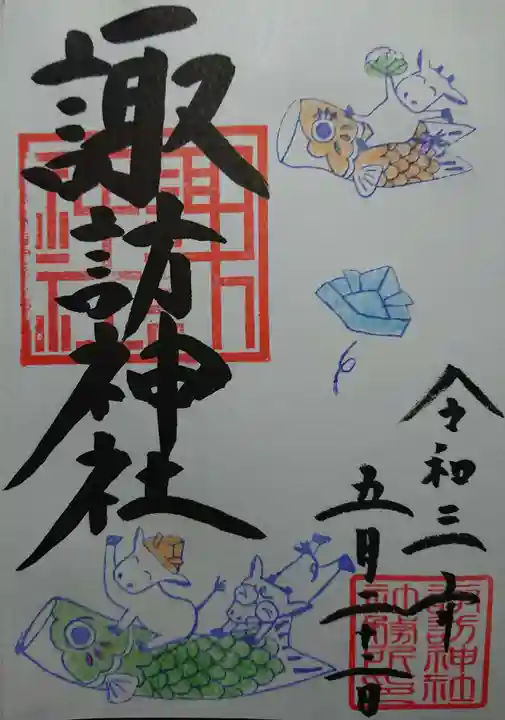 令和三年
五月二十二日
諏訪神社
諏訪神社
諏訪神社